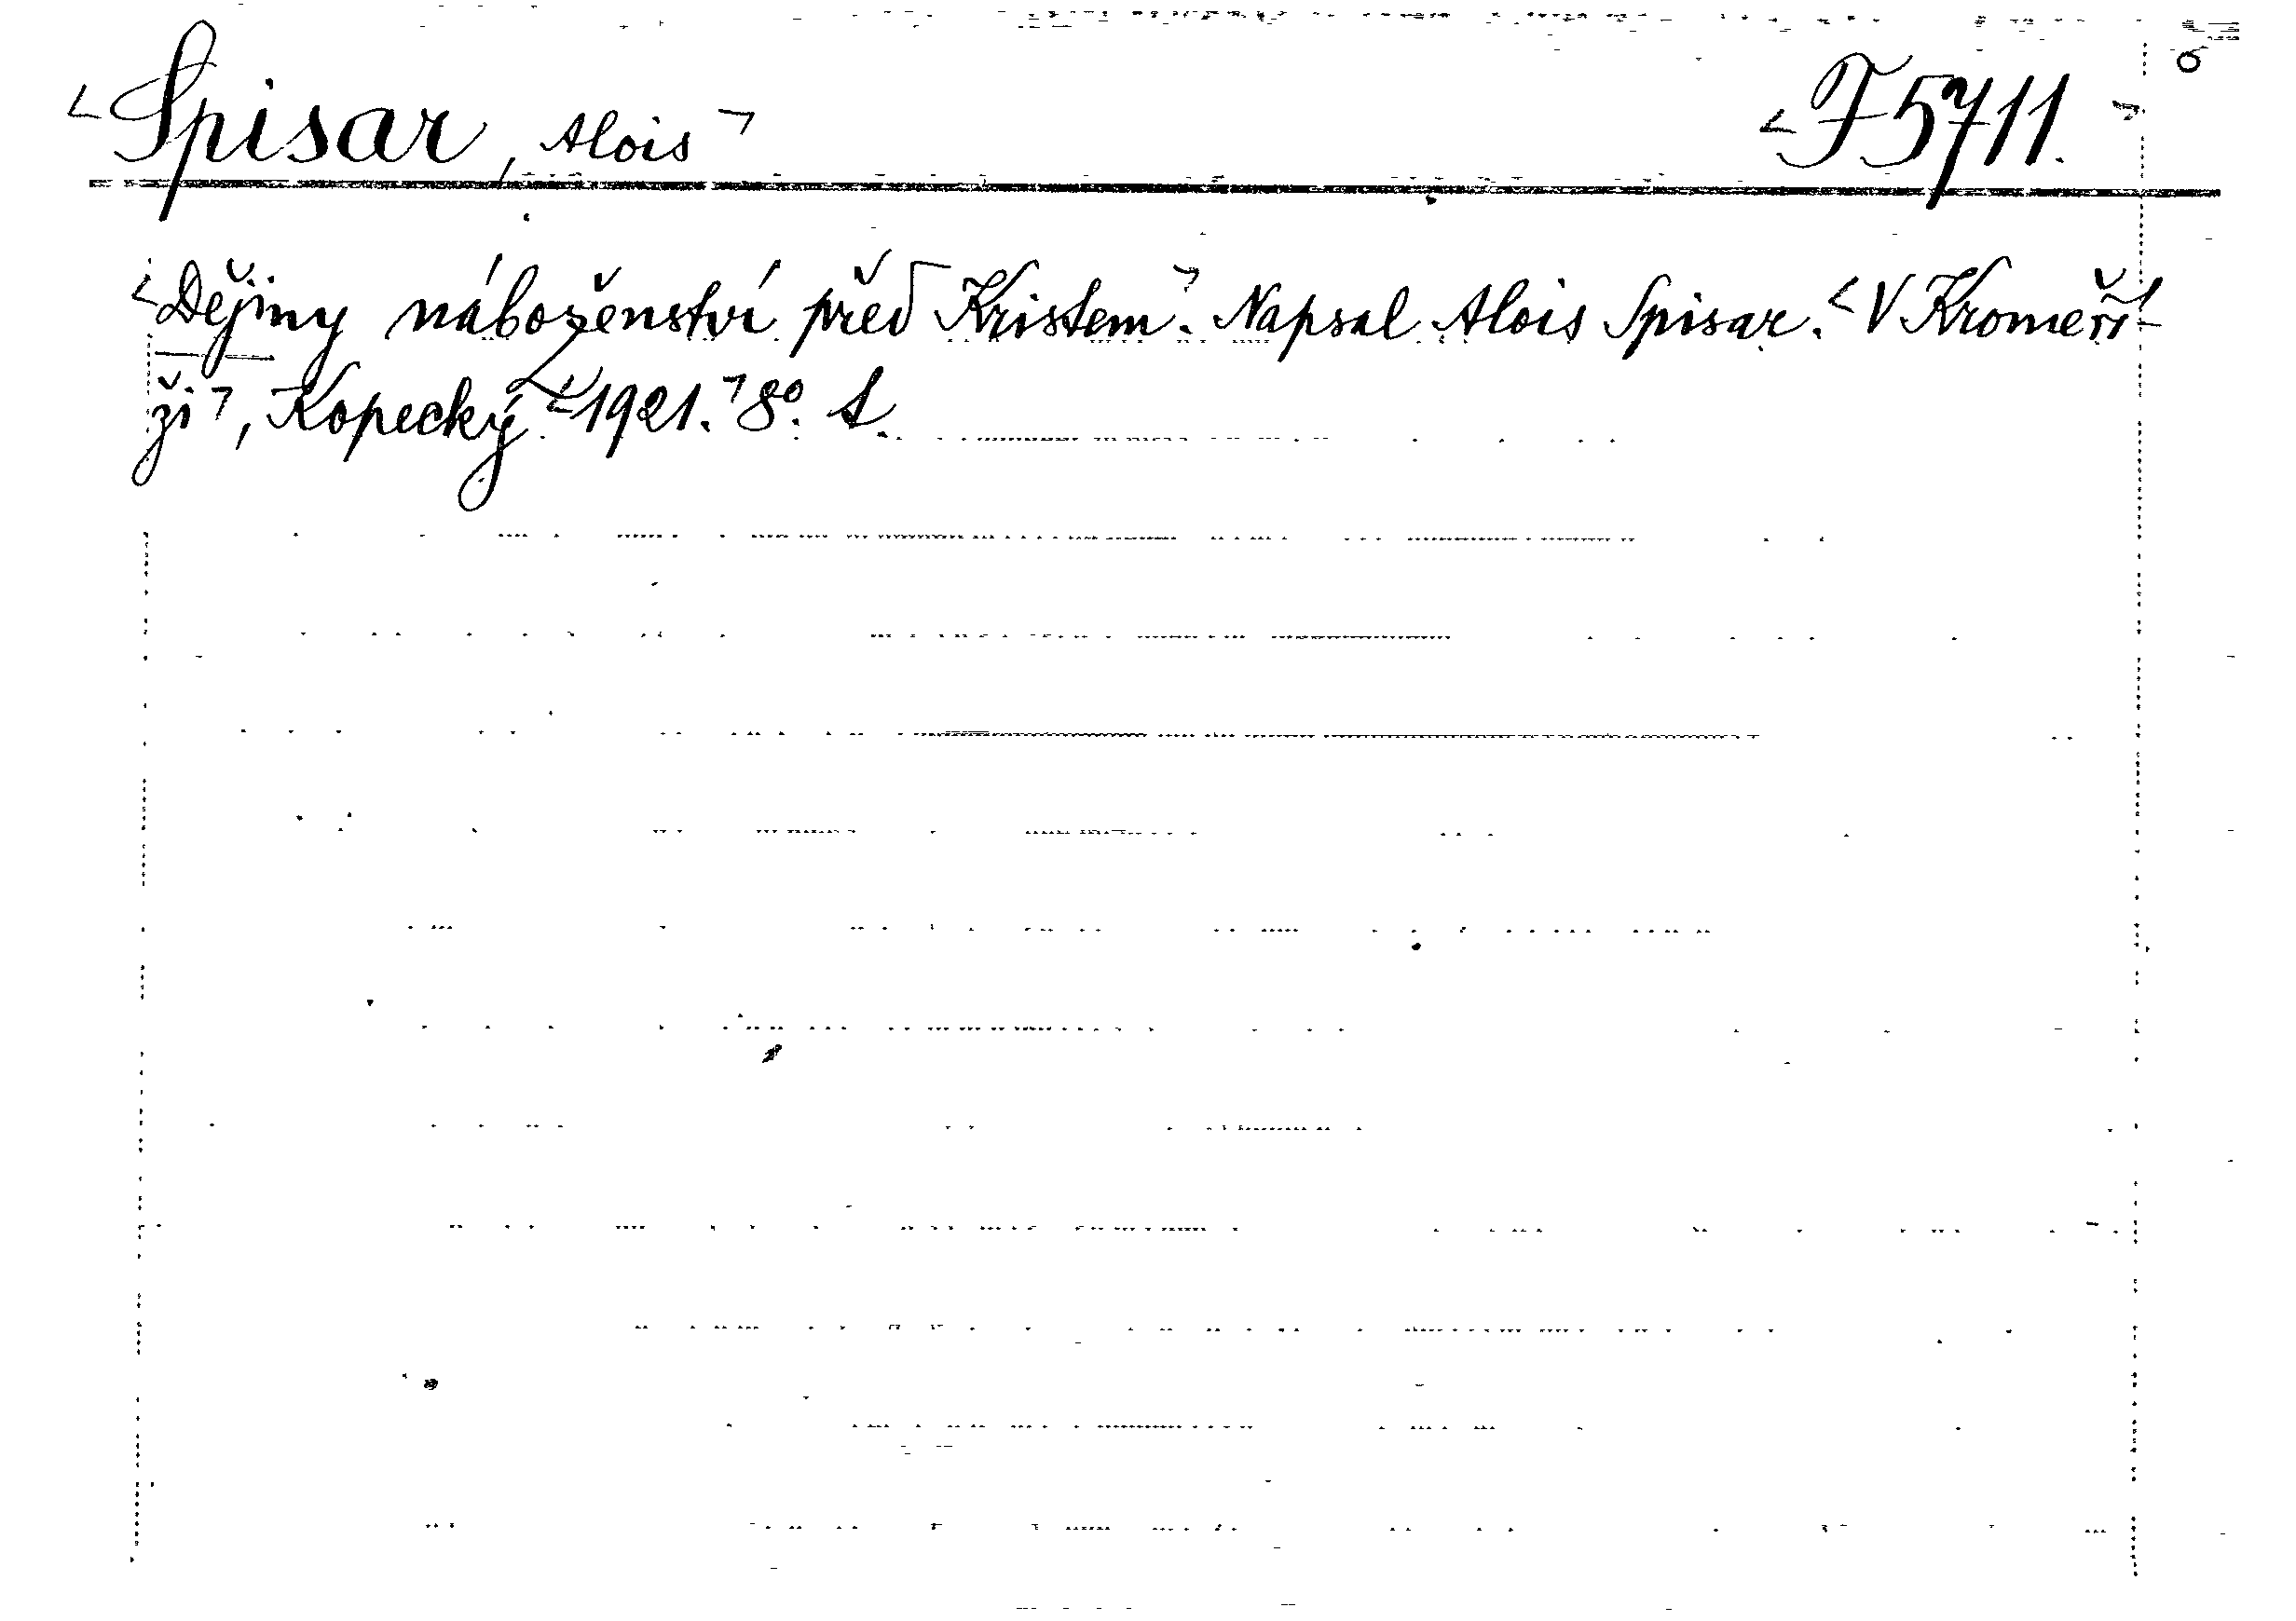 <Spisar, Alois> <F 5711.> 6
<Dějiny náboženství před Kristem>. Napsal Alois Spisar. <V Kroměří-
ži>, Kopecký <1921.> 8°. S.